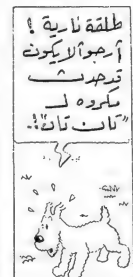 طلقة نارية !
أرجو ألا يكون
قد حدث
مكروه لـ
"تان تان"!..